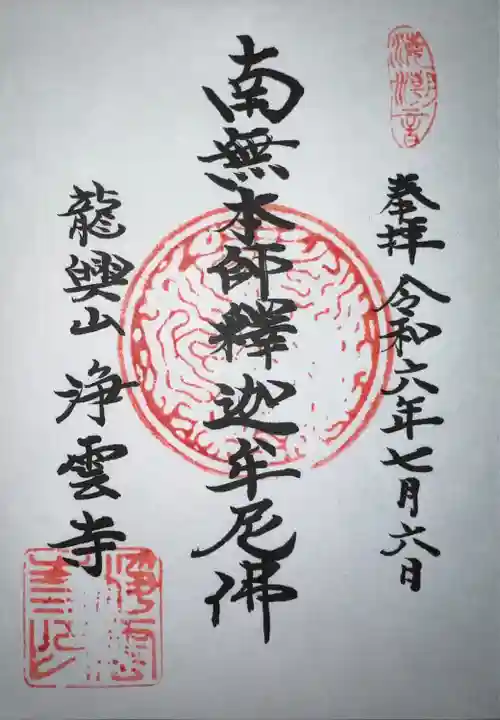 奉拝 令和六年七月六日
南無本師釋迦牟尼佛
龍興山 浄雲寺